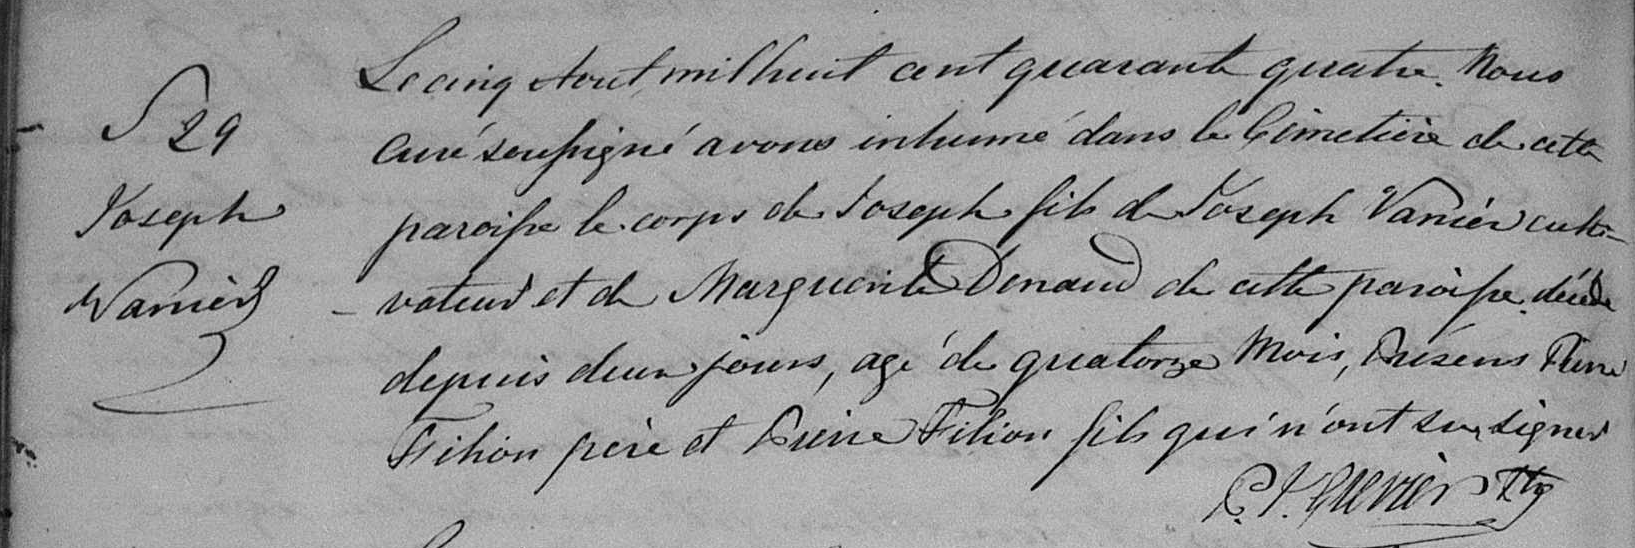 S 29
Joseph
Vanièr
Le cinq Aout mil huit cent quarante quatre. Nous
Curé soussigné avons inhumé dans le Cimetière de cette
paroisse le corps de Joseph fils de Joseph Vanièr culti-
-vateur et de Marguerite Dénaud de cette paroisse décédé
depuis deux jours, agé de quatorze Mois, Présens Pierre
Filion père et Pierre Filion fils qui n'ont su signer